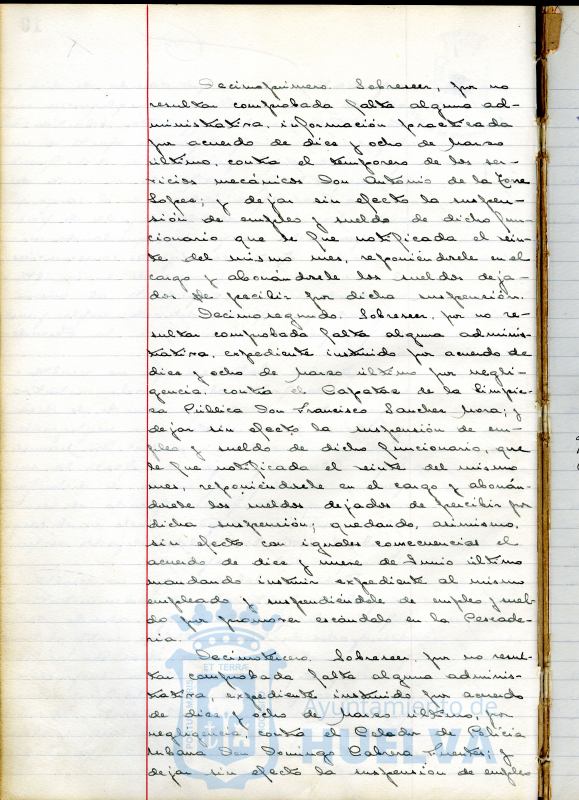 Decimoprimero. Sobreseer, por no
resultar comprobada falta alguna ad-
ministrativa, información practicada
por acuerdo de diez y ocho de Marzo
último, contra el temporero de los ser-
vicios mecánicos Don Antonio de la Torre
López; y dejar sin efecto la suspen-
sión de empleo y sueldo de dicho fun-
cionario que le fue notificada el vein-
te del mismo mes, reponiéndosele en el
cargo y abonándosele los sueldos deja-
dos de percibir por dicha suspensión.
Decimosegundo. Sobreseer, por no re-
sultar comprobada falta alguna adminis-
trativa, expediente instruido por acuerdo de
diez y ocho de Marzo último por negli-
gencia, contra el Capataz de la Limpie-
za Pública Don Francisco Sanchez Mora; y
dejar sin efecto la suspensión de em-
pleo y sueldo de dicho funcionario, que
le fue notificada el veinte del mismo
mes, reponiéndosele en el cargo y abonán-
dosele los sueldos dejados de percibir por
dicha suspensión; quedando, asimismo,
sin efecto con iguales consecuencias el
acuerdo de diez y nueve de Junio último
mandando instruir expediente al mismo
empleado y suspendiéndole de empleo y suel-
do por promover escándalo en la Pescade-
ria.
Decimotercero. Sobreseer, por no resul-
tar comprobada falta alguna adminis-
trativa, expediente instruido por acuerdo
de diez y ocho de Marzo último, por
negligencia, contra el Celador de Policía
Urbana Don Domingo Cabrera Fuentes; y
dejar sin efecto la suspensión de empleo
ET TERRÆ
Ayuntamiento de
HUELVA